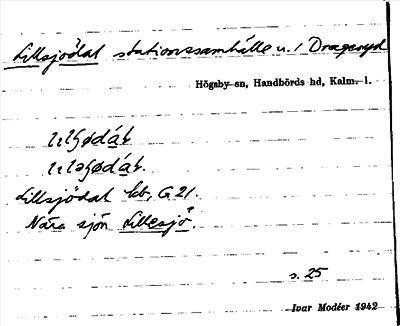 Lillsjödal stationssamhälle u. / Dragesryd
Högsby sn, Handbörds hd, Kalm. l.
Lillsjödal kb, G 21.
Nära sjön Lillesjö.
s. 25
Ivar Modéer 1942